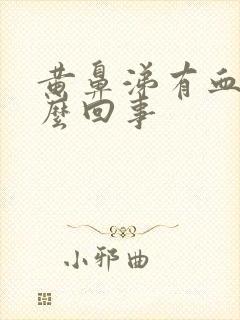 黄鼻涕有血
麼回事
小邪曲